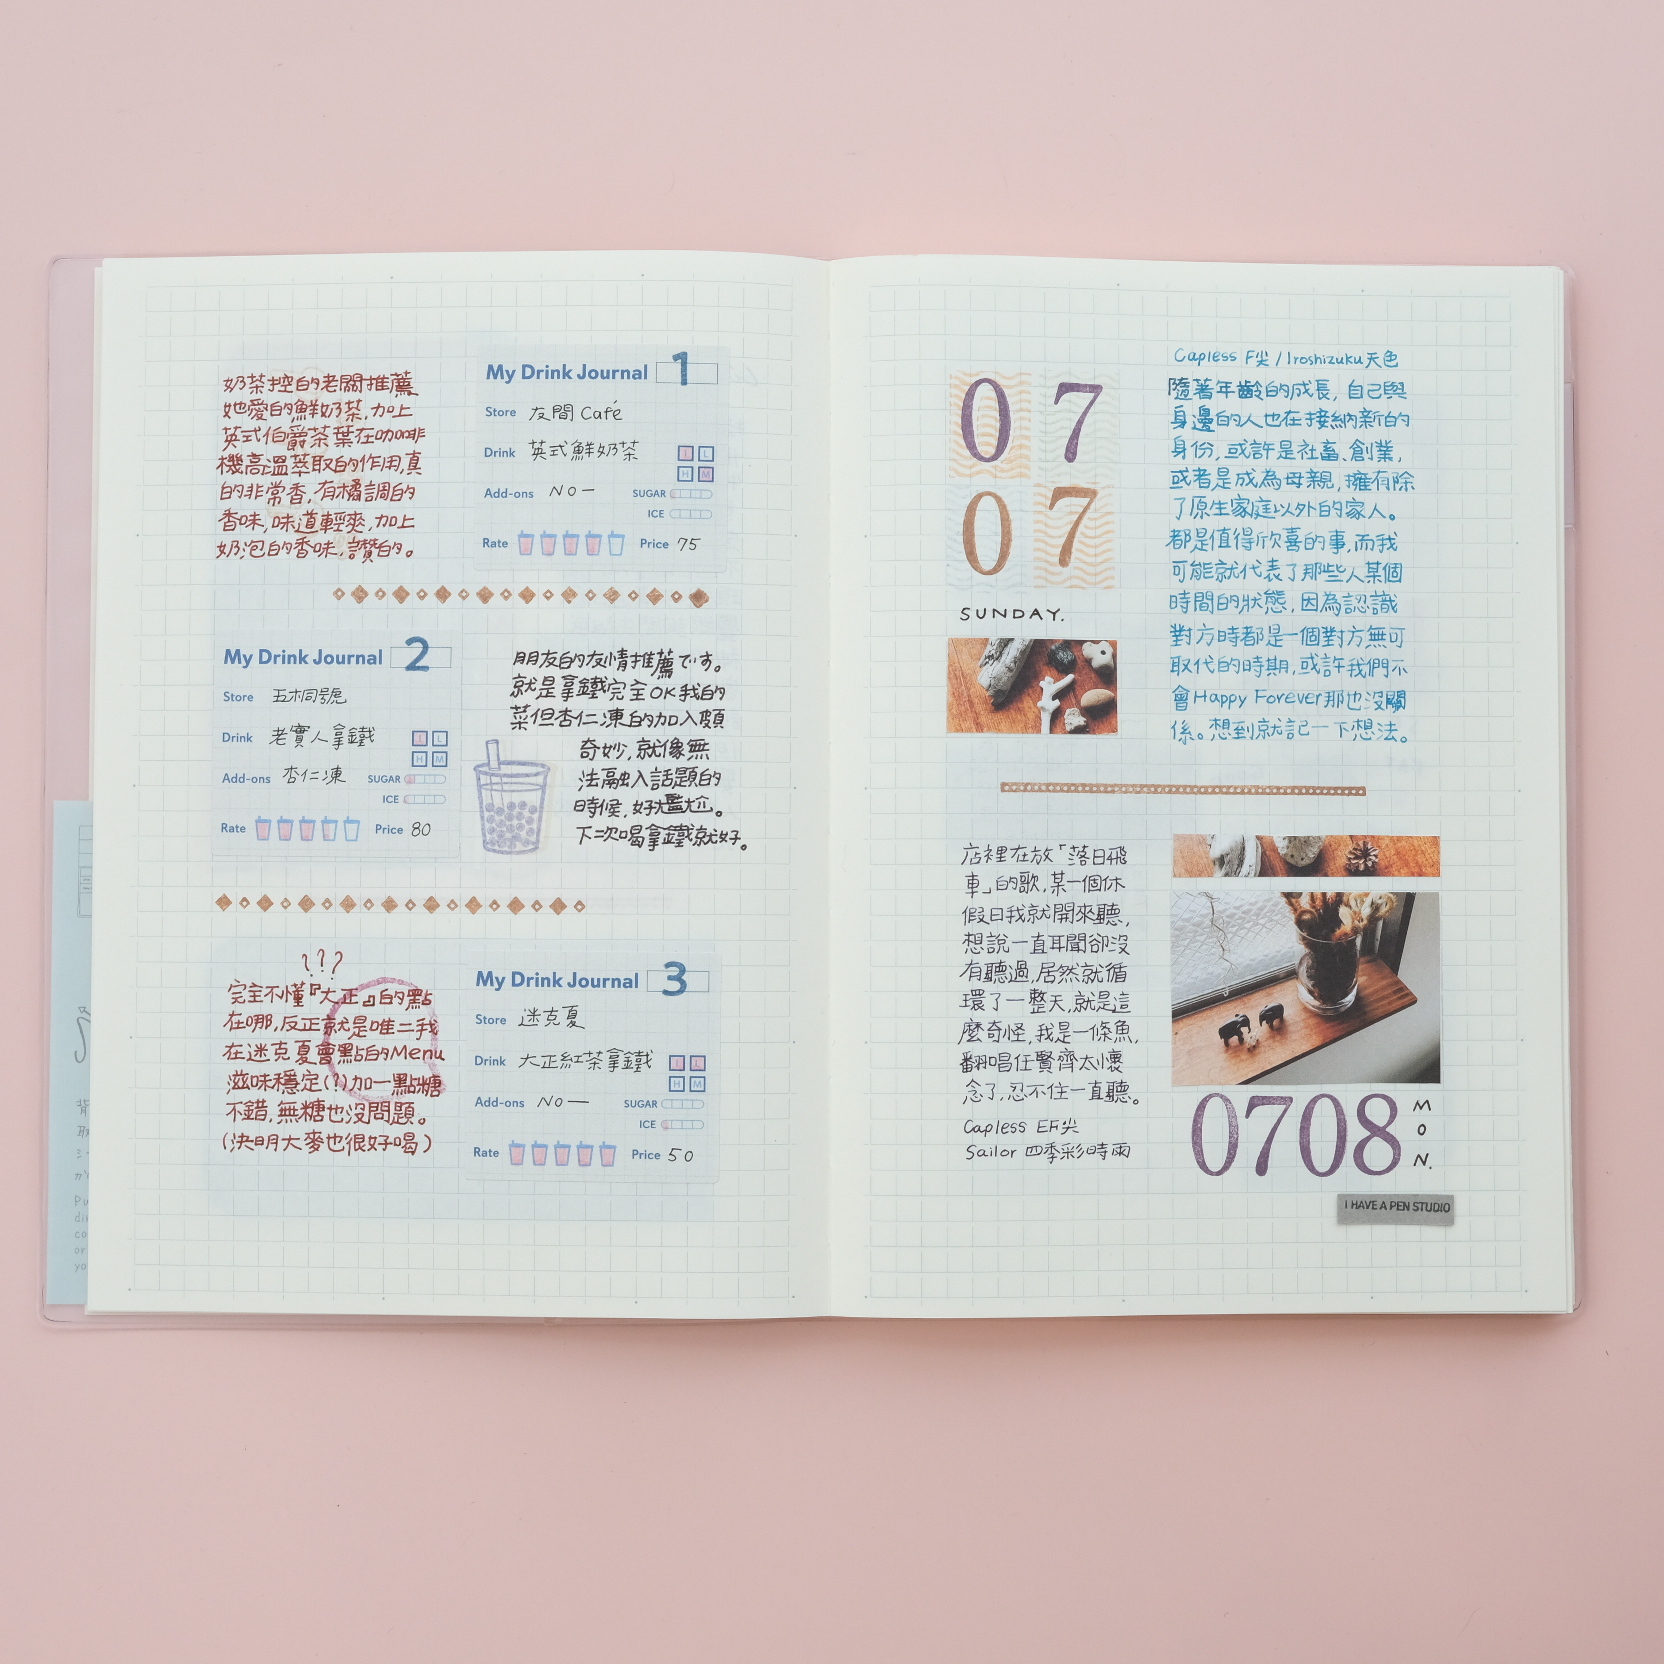 奶茶控的老闆推薦
她愛的鮮奶茶,加上
英式伯爵茶葉在咖啡
機高溫萃取的作用,真
的非常香,有橘調的
香味,味道輕爽,加上
奶泡的香味,讚的。
My Drink Journal 1
Store 友間 Café
Drink 英式鮮奶茶
L L
H M
Add-ons No—
SUGAR
ICE
Rate
Price 75
My Drink Journal 2
Store 五桐號
Drink 老實人拿鐵
L L
H M
Add-ons 杏仁凍
SUGAR
ICE
Rate
Price 80
朋友的友情推薦です。
就是拿鐵完全OK我的
菜但杏仁凍的加入頗
奇妙,就像無
法融入話題的
時候,好尷尬。
下次喝拿鐵就好。
???
完全不懂『大正』的點
在哪,反正就是唯二我
在迷克夏會點的Menu
滋味穩定(?)加一點糖
不錯,無糖也沒問題。
(決明大麥也很好喝)
My Drink Journal 3
Store 迷克夏
Drink 大正紅茶拿鐵
L L
H M
Add-ons No—
SUGAR
ICE
Rate
Price 50
07
07
SUNDAY.
Capless F尖/Iroshizuku天色
隨著年齡的成長,自己與
身邊的人也在接納新的
身份,或許是社畜、創業,
或者是成為母親,擁有除
了原生家庭以外的家人。
都是值得欣喜的事,而我
可能就代表了那些人某個
時間的狀態,因為認識
對方時都是一個對方無可
取代的時期,或許我們不
會Happy Forever那也沒關
係。想到就記一下想法。
店裡在放「落日飛
車」的歌,某一個休
假日我就開來聽,
想說一直耳聞卻沒
有聽過,居然就循
環了一整天,就是這
麼奇怪,我是一條魚,
翻唱任賢齊太懷
念了,忍不住一直聽。
Capless EF尖
Sailor 四季彩時雨
0708
MON.
I HAVE A PEN STUDIO